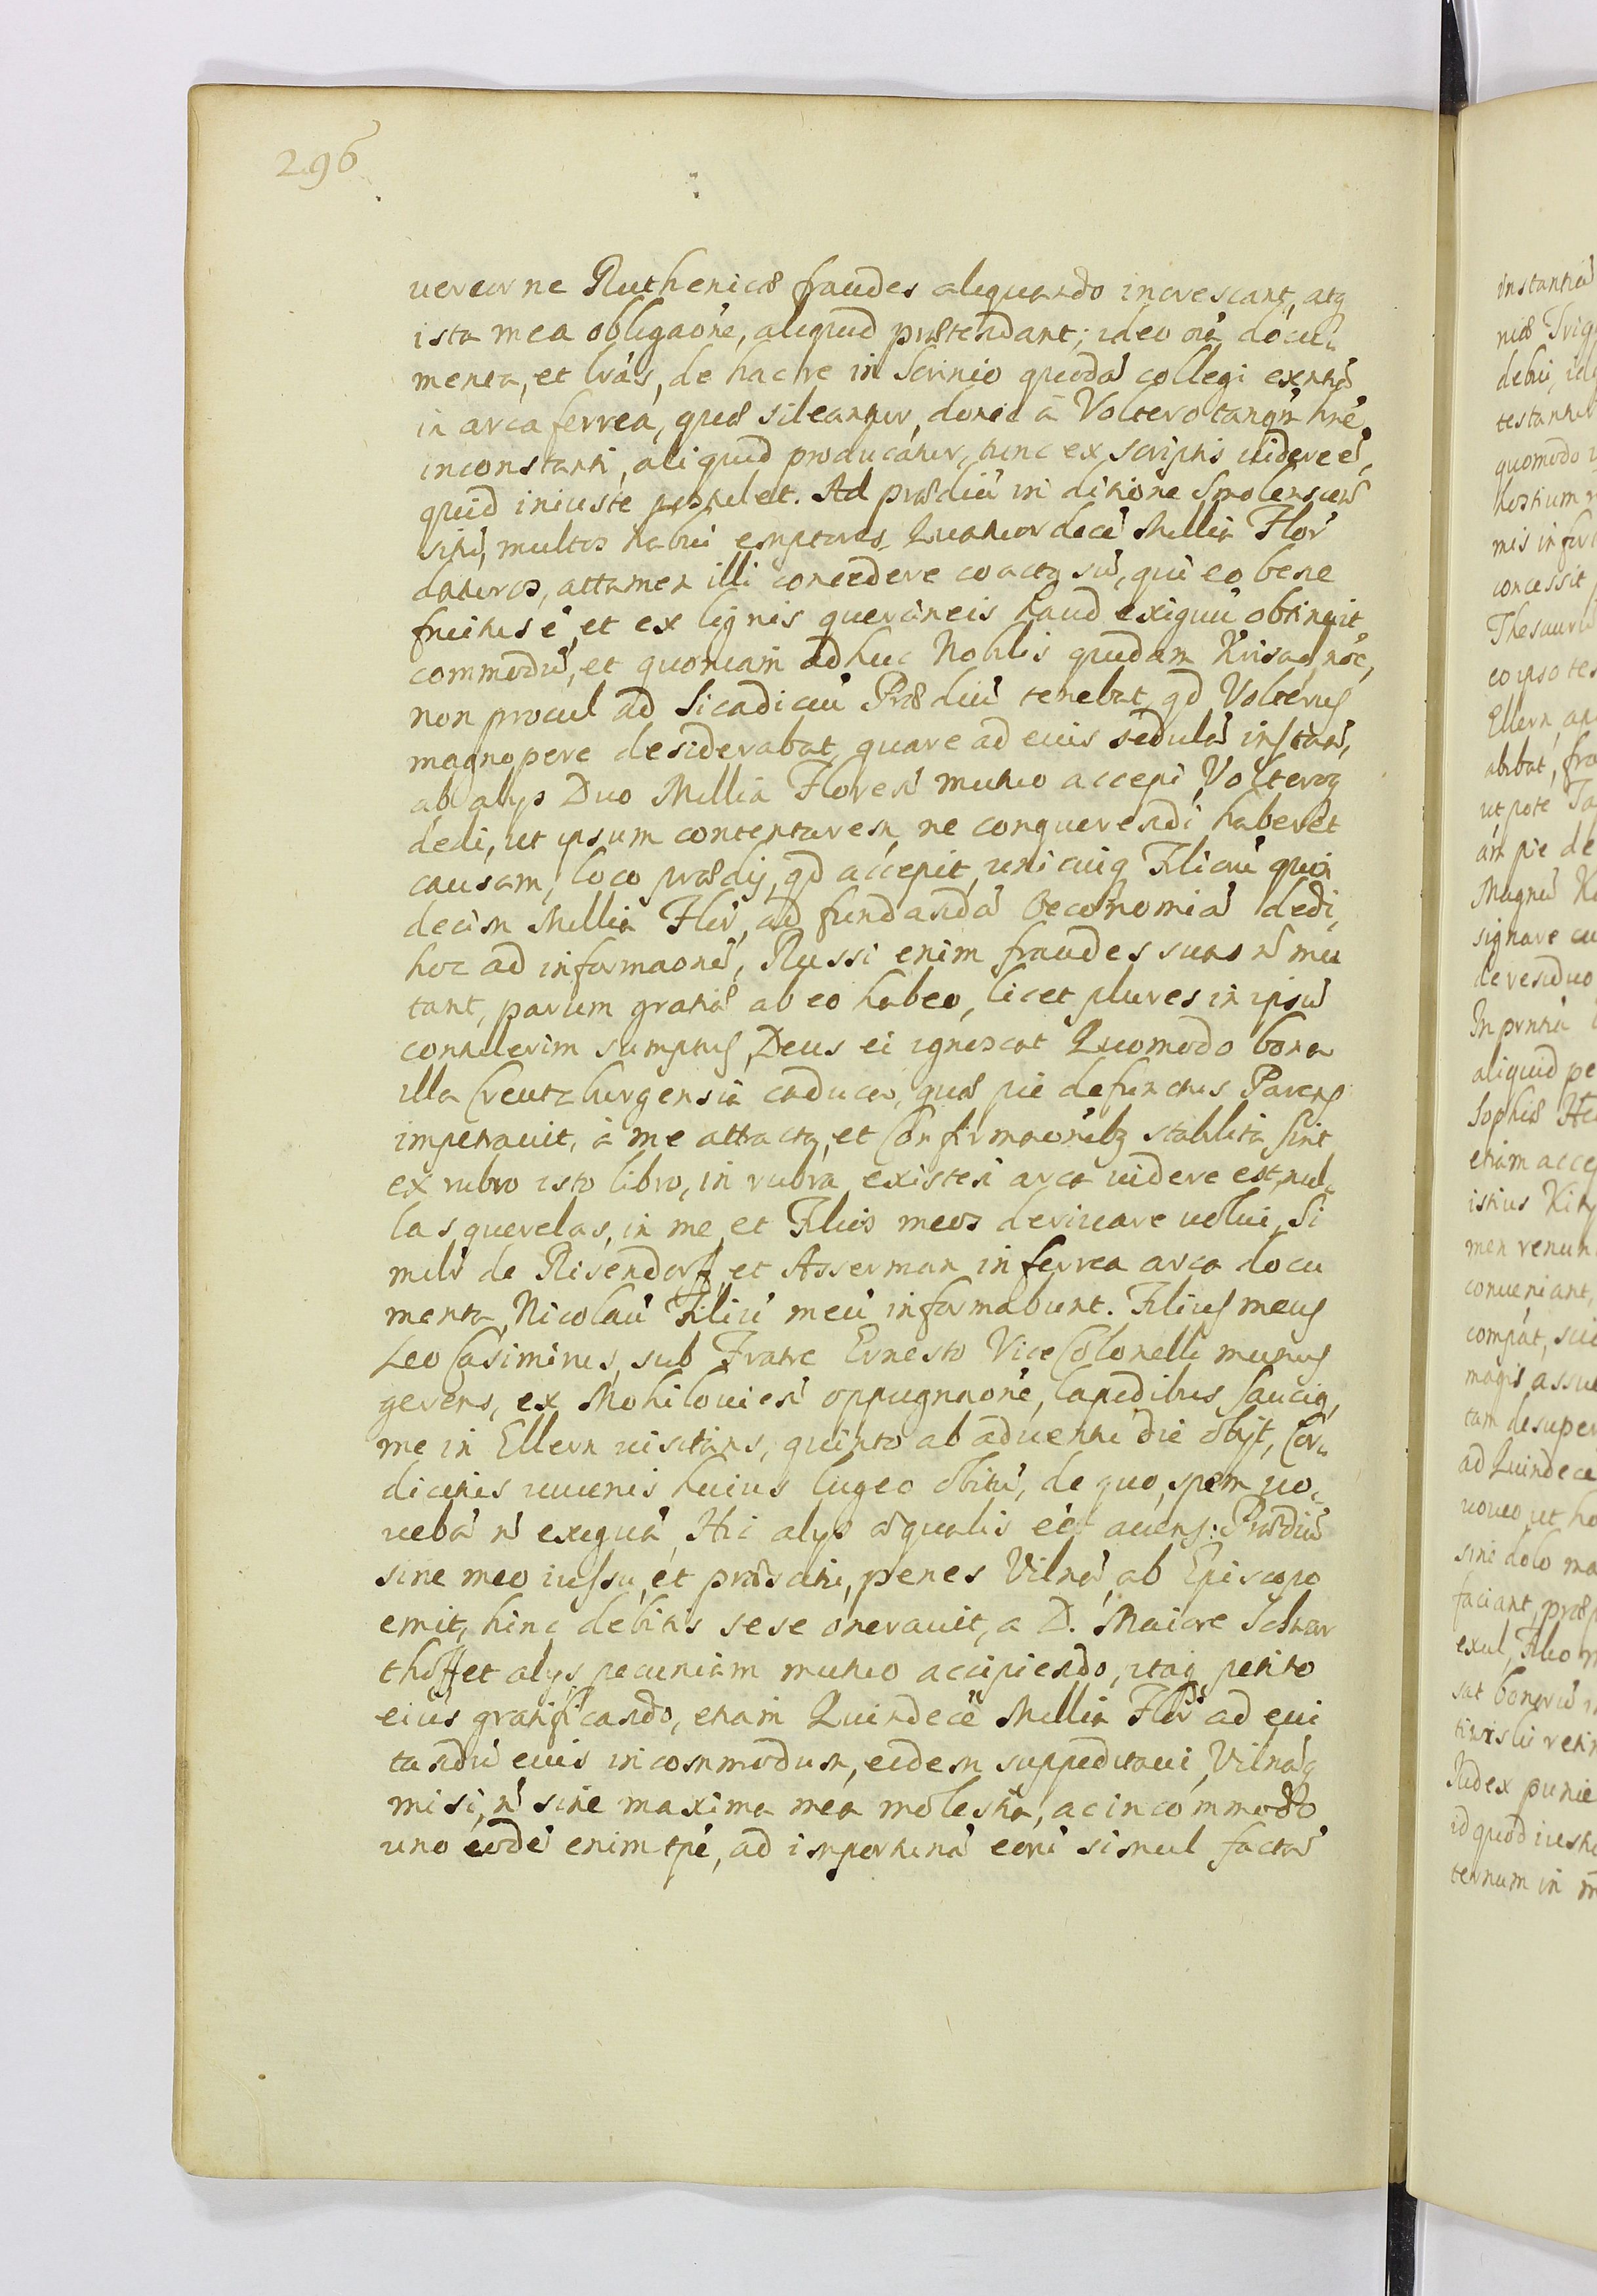 296
uereor ne Ruthenicæ fraudes aliquando increscant, atq
ista mea obligaōne, aliquid prætendant; ideo oīa docu⸗
menta, et lr̄as, de hac re in Scrinio quodā collegi extn̄tē
in arca ferrea, quæ sileantur, donec à Voltero tanqm̄ hn̄e
inconstanti, aliquid producātur, hinc ex scriptis uidere ē,
quid iniuste postulet. Ad prædiū in ditione Smolenscen̄
siti, multos habui emptores Quatuordecē Millia Flor̄
daturos, attamen illi concedere coactq sū, qui eo bene
fruitus ē, et ex lignis queràneis haud exiguū obtinuit
commodū, et quoniam adhuc Nobilis quidam
non procul ad Sicadicū Prædiū tenebat, qd Volterus
magnopere desiderabat, quare ad euis sedulā instān̄,
ab alijs Duo Millia Floren̄ mutuo accepi, Volteroq
dedi, ut ipsum contentarem, ne conquerendi haberet
causam, loco prædij, qd accepit, unicuiq Filiorū quin
decim Millia Flor̄, ad fundandā Oeconomiā dedi,
hoc ad informaonē, Russi enim fraudes suas n̄ mu
tant, parum gratiæ ab eo habeo, licet plures in ipsū
contulerim sumptus, Deus ei ignoscat Quomodo bona
illa Creutzburgensia caduca, quæ pie defunctus Parens
impetrauit, à me attracta, et Confirmaōnibq stabilita sint
ex rubro isto libro, in rubra existen̄ arca uidere est, nul⸗
las querelas, in me et Filios meos deriuare uolui, Si
milr̄ de Risendorff et Asserman in ferrea arca docu
menta, Nicolaū Filiū meū informabunt. Filius meus
Leo Casimirus, sub Fratre Ernesto Vice Colonelli munus
gerens, ex Mohilouien̄ oppugnaōne, lapidibus sauciq,
me in Ellern uisitans, quinto ab aduentu die obijt, Cor⸗
dicitus iuuenis huius lugeo obitū, de quo, spem uo⸗
uebā n̄ exiguā, Hic alijs æqualis eēt auens: Prædiū
sine meo iussu, et præscitu, penes Vilnā, ab Episcopo
emit, hinc debitis sese onerauit, a D. Maiore Schwar
thoff et alijs pecuniam mutuo accipiendo, itaq petito
eius gratificando, etiam Quindecē Millia Flor̄ ad eui
tandū euis incommodum, eidem suppeditaui, Vilnāq
misi, n̄ sine maxima mea molestia, ac incommodo
uno eodē enim tp̄e, ad importunā eorū simul factā
instantiā
niæ Trig
debui, id
testantur
quomodo
hostium
mis infor
concessit
Thesauru
eo ipso tes
Ellern, an
abibat, fra
ut pote Ta
am pie de
Magnū
signare cu
de residuo
In prn̄tia
aliquid pe
Sophiæ He
etiam acce
istius
men renun
conueniant,
compat, sui
magis assue
tam desuper
ad Quindece
uoueo, ut ho
sine dolo ma
faciant, præ
exul, Filio m
sat bonorū
retin
Judex punie
id quod iusti
ternum in